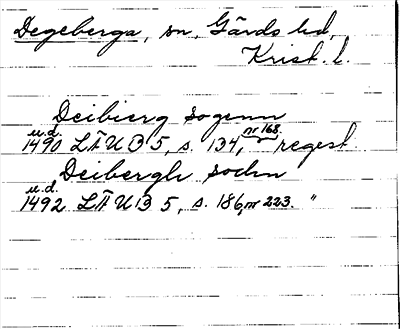 Degeberga, sn, Gärds hd,
Krist. l.
Deibierg sogenn
u.d.
1490 LÄUB 5, s. 134, nr 168. regest.
Deibergh sochn
u.d.
1492 LÄUB 5, s. 186, nr 223. "